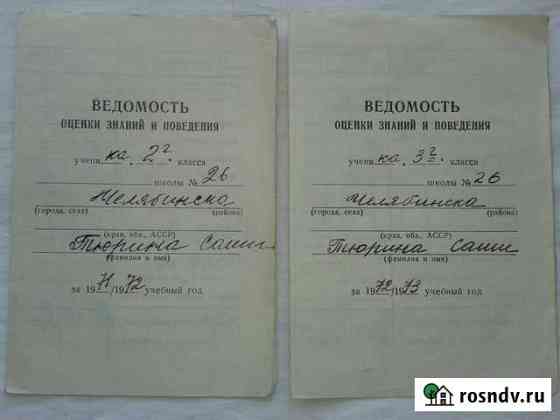 ВЕДОМОСТЬ
ОЦЕНКИ ЗНАНИЙ И ПОВЕДЕНИЯ
учени ка. 2 г. класса
школы № 26
Челябинска
(города, села) (района)
(края, обл., АССР)
Тюрина Саши
(фамилия и имя)
за 1971/1972 учебный год
ВЕДОМОСТЬ
ОЦЕНКИ ЗНАНИЙ И ПОВЕДЕНИЯ
учени ка. 3 г. класса
школы № 26
Челябинска
(города, села) (района)
(края, обл., АССР)
Тюрина Саши
(фамилия и имя)
за 1972/1973 учебный год
rosndv.ru